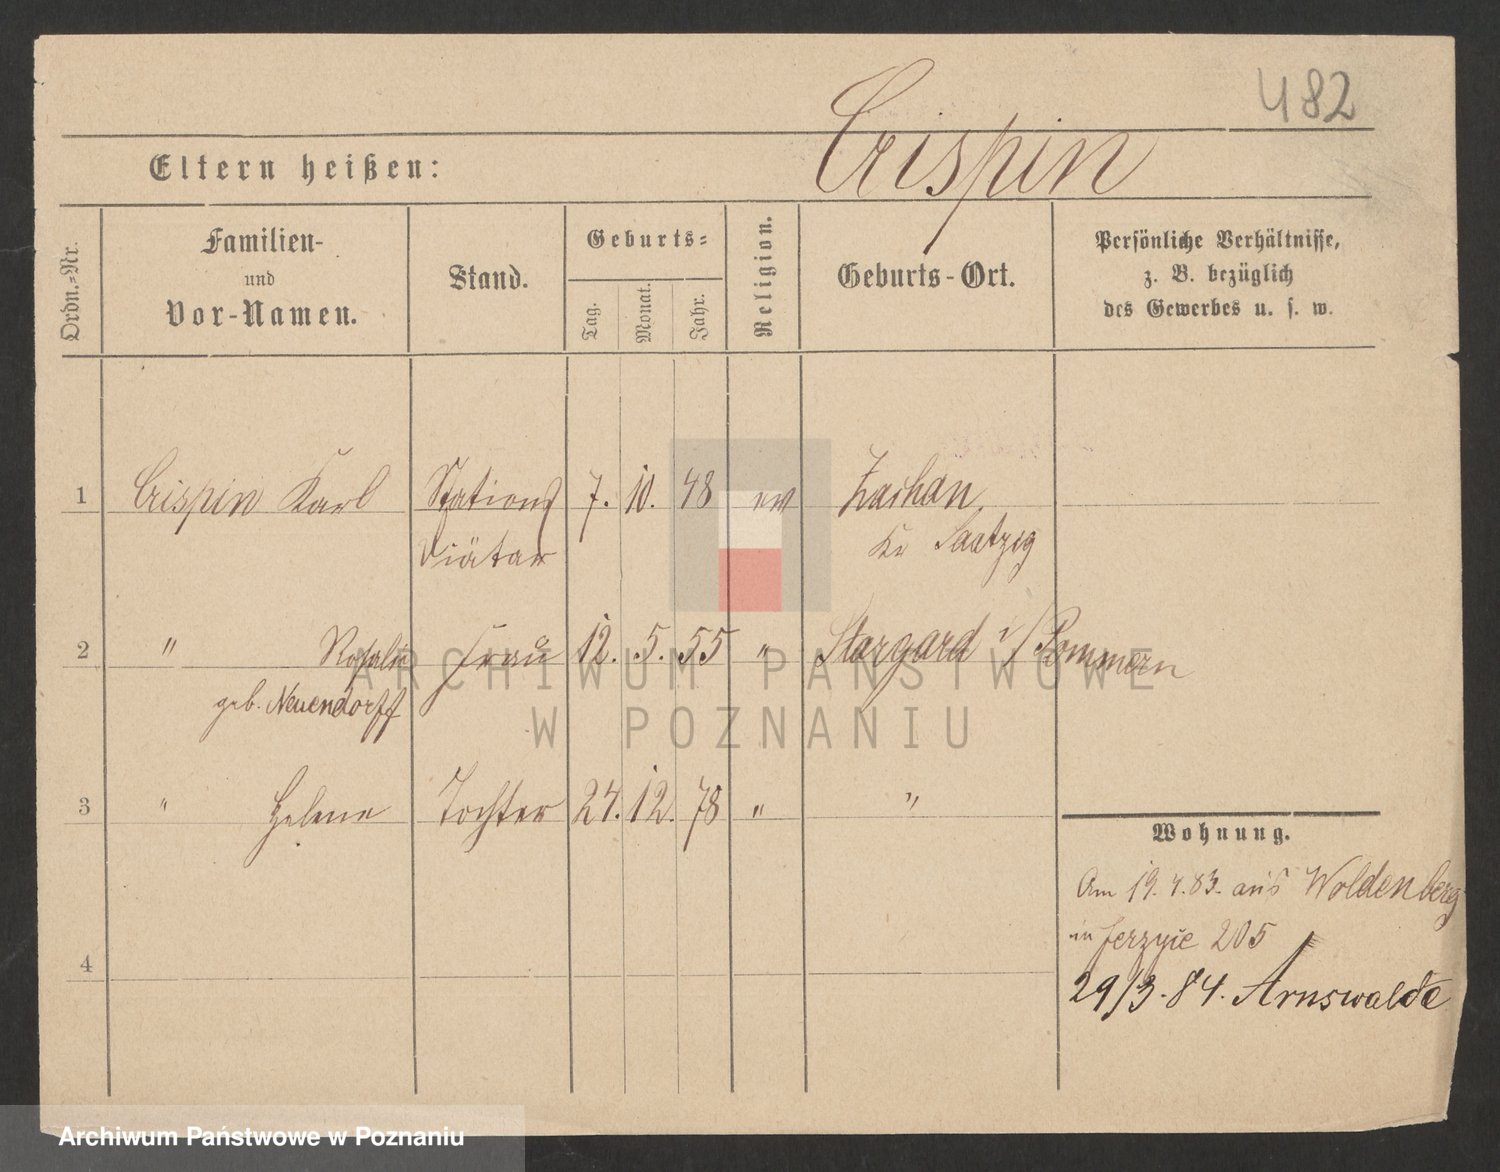 482
Crispin
Eltern heißen:
Ordn.-Nr.
Familien-
und
Vor-Namen.
Stand.
Geburts-
Tag.
Monat.
Jahr.
Religion.
Geburts-Ort.
Persönliche Verhältnisse,
z. B. bezüglich
des Gewerbes u. s. w.
1 Crispin Karl Stations 7. 10. 48 ev Zachan
Diätar Kr Saatzig
2 " Rosalie Frau 12. 5. 55 " Stargard i/Pommern
geb. Neuendorff
3 " Helene Tochter 24. 12. 78 " "
4
Wohnung.
Am 19. 4. 83. aus Woldenberg
in Jerzyce 205
29/3. 84. Arnswalde
ARCHIWUM PAŃSTWOWE
W POZNANIU
Archiwum Państwowe w Poznaniu